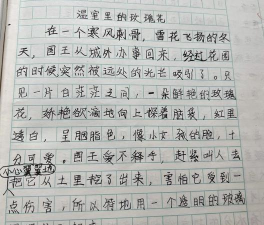 温室里的玫瑰花
在一个寒风刺骨，雪花飞扬的冬
天，国王从城外办事回来，经过花园
的时候突然被远处的光芒吸引了。只
见一片白茫茫之间，一朵鲜艳的玫瑰
花，娇艳欲滴地向上探着脑袋，红里
透白，呈胭脂色，像小女孩的脸，十
分可爱。国王爱不释手，赶紧叫人去
小心翼翼地
把它从土里挖了出来，害怕它受到一
点伤害，所以特地用一个透明的玻璃